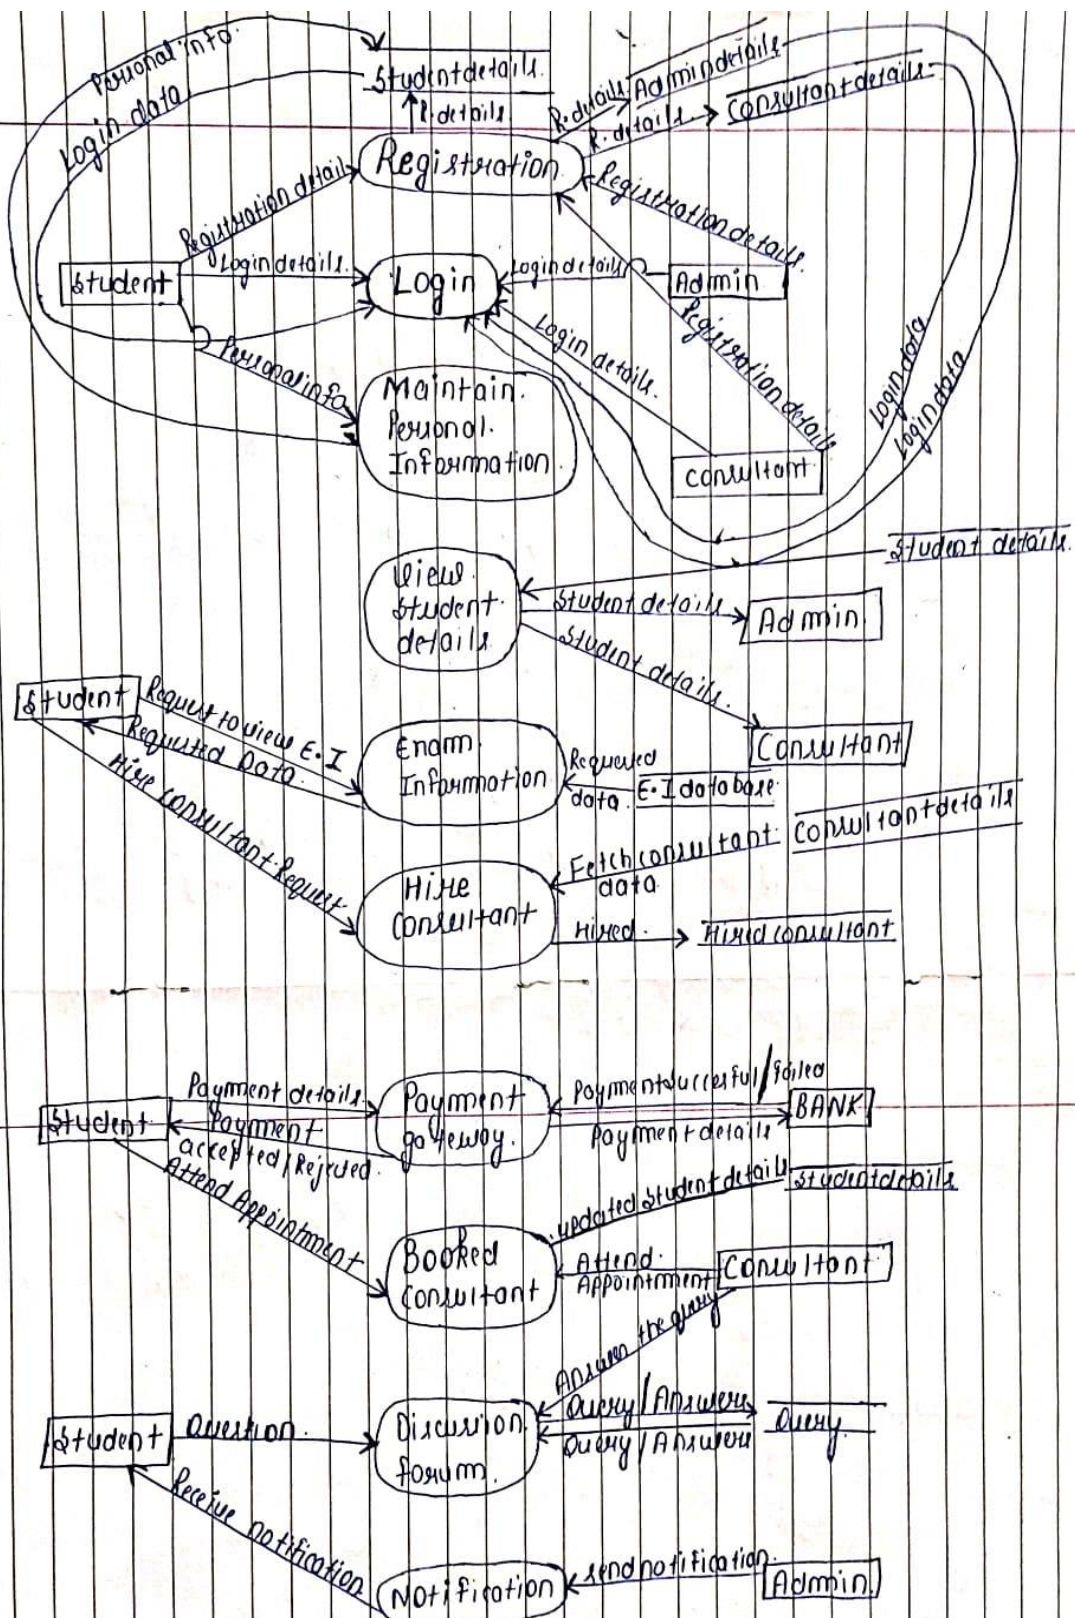 Personal info.
Student details.
Login data
R.details
R.details
Admin details
R.details
Consultant details
Registration
Registration details
Registration details
Student
Login details.
Login
Login details
Admin
Login details.
Registration details
Personal info
Maintain
Personal.
Information
Consultant
Login data
Login data
Student details
View
Student
details
Student details
Admin
Student details.
Student
Request to view E.I
Requested Data.
Hire consultant Request
Consultant
Exam
Information
Requested
data.
E.I database
Fetch consultant
data
Consultant details
Hire
Consultant
Hired.
Hired consultant
Payment details.
Student
Payment
accepted/Rejected.
Payment
gateway.
Payment successful/failed
BANK
Payment details
Attend Appointment
updated student details
Student details
Booked
Consultant
Attend
Appointment
Consultant
Answer the query
Query/Answers
Query
Query/Answers
Student
Question.
Discussion
forum.
Receive notification
Notification
send notification.
Admin